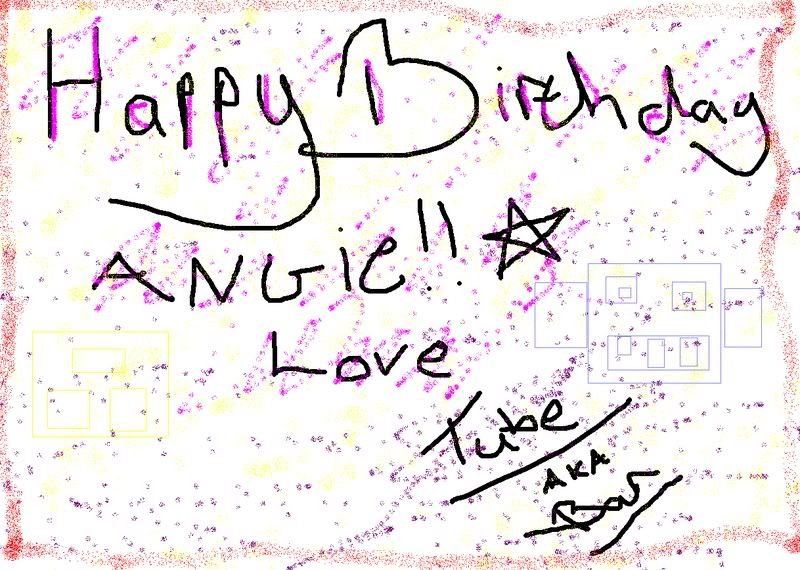 Happy Birthday
ANGie!!
Love
Tube
AKA